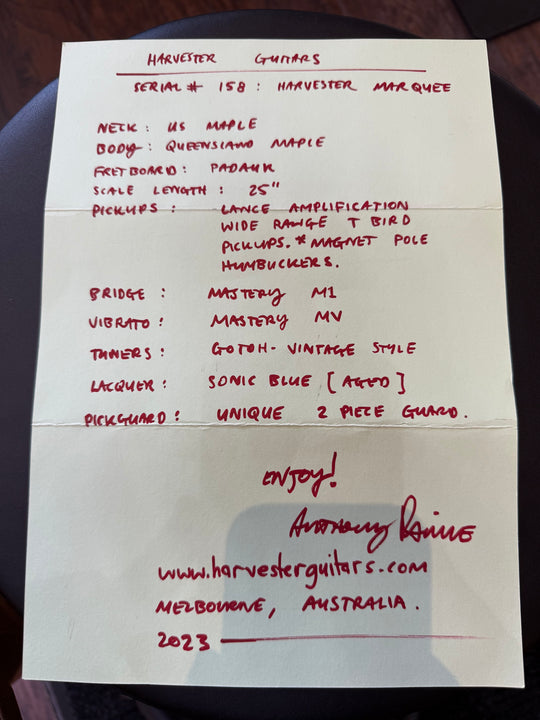 HARVESTER GUITARS
SERIAL # 158 : HARVESTER MARQUEE
NECK : US MAPLE
BODY : QUEENSLAND MAPLE
FRETBOARD : PADAUK
SCALE LENGTH : 25"
PICKUPS : LANCE AMPLIFICATION
WIDE RANGE T BIRD
PICKUPS. * MAGNET POLE
HUMBUCKERS.
BRIDGE : MASTERY M1
VIBRATO : MASTERY MV
TUNERS : GOTOH - VINTAGE STYLE
LACQUER : SONIC BLUE [ AGED ]
PICKGUARD : UNIQUE 2 PIECE GUARD.
ENJOY!
ANTHONY
www.harvesterguitars.com
MELBOURNE, AUSTRALIA.
2023